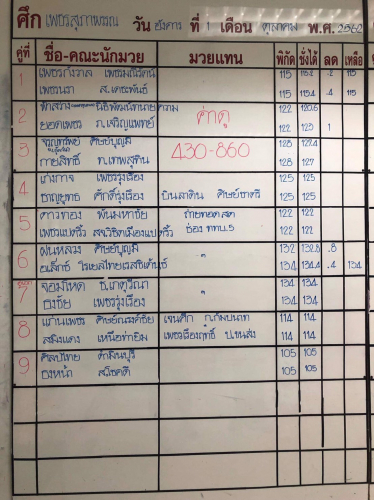 ศึก เพชรสุภาพรรณ วัน อังคาร ที่ 1 เดือน ตุลาคม พ.ศ. 2562
คู่ที่ ชื่อ-คณะนักมวย มวยแทน พิกัด ชั่งได้ ลด เหลือ
1 เพชรกังวาล เพชรมณีรัตน์ 115 115.2 .2 115
เพชรนภา ส.เดชะพันธ์ 115 115.4 .4 115
2 122 120.6
ยอดเพชร ภ.เจริญแพทย์ ค่าดู 122 123 1
3 ศิษย์บุญมี 430-860 128 127.4
กายสิทธิ์ ท.เทพสุทิน 128 127
4 เก่งกาจ เพชรรุ่งเรือง 125 125
ชาญยุทธ ศักดิ์รุ่งเรือง บินลาดิน ศิษย์ 125 125
5 ดาวทอง พันมหาชัย ถ่ายทอดสด 122 122
เพชรแปดริ้ว สจ.วิชิตเมืองแปดริ้ว ช่อง ททบ.5 122 122
6 ฝนหลวง ศิษย์บุญมี " 132 132.8 .8
อเล็กซ์ 134 134.4 .4 134
7 จอมโหด 134 134
ธงชัย เพชรรุ่งเรือง " 134 134
8 แก่นเพชร ศิษย์ณรงค์ชัย เจนศึก 114 114
สมิงแดง เหนือท่ายิม เพชรเรืองฤทธิ์ ป.ขนส่ง 114 114
9 ศิลป์ไทย ด่ามินบุรี 105 105
ธงหน้า ส.โชคดี 105 105